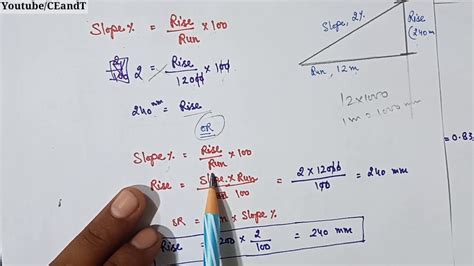 Youtube/CEandT
Slope % = Rise/Run × 100
2 = Rise/12000 × 100
240 mm = Rise
OR
Slope % = Rise/Run × 100
Rise = Slope × Run/100 = 2 × 12000/100 = 240 mm
OR
× Slope %
Rise = 2/100 = 240 mm
Slope, 2%
Rise
(240 m
Run, 12 m
12×1000
1m = 1000 mm
= 0.83